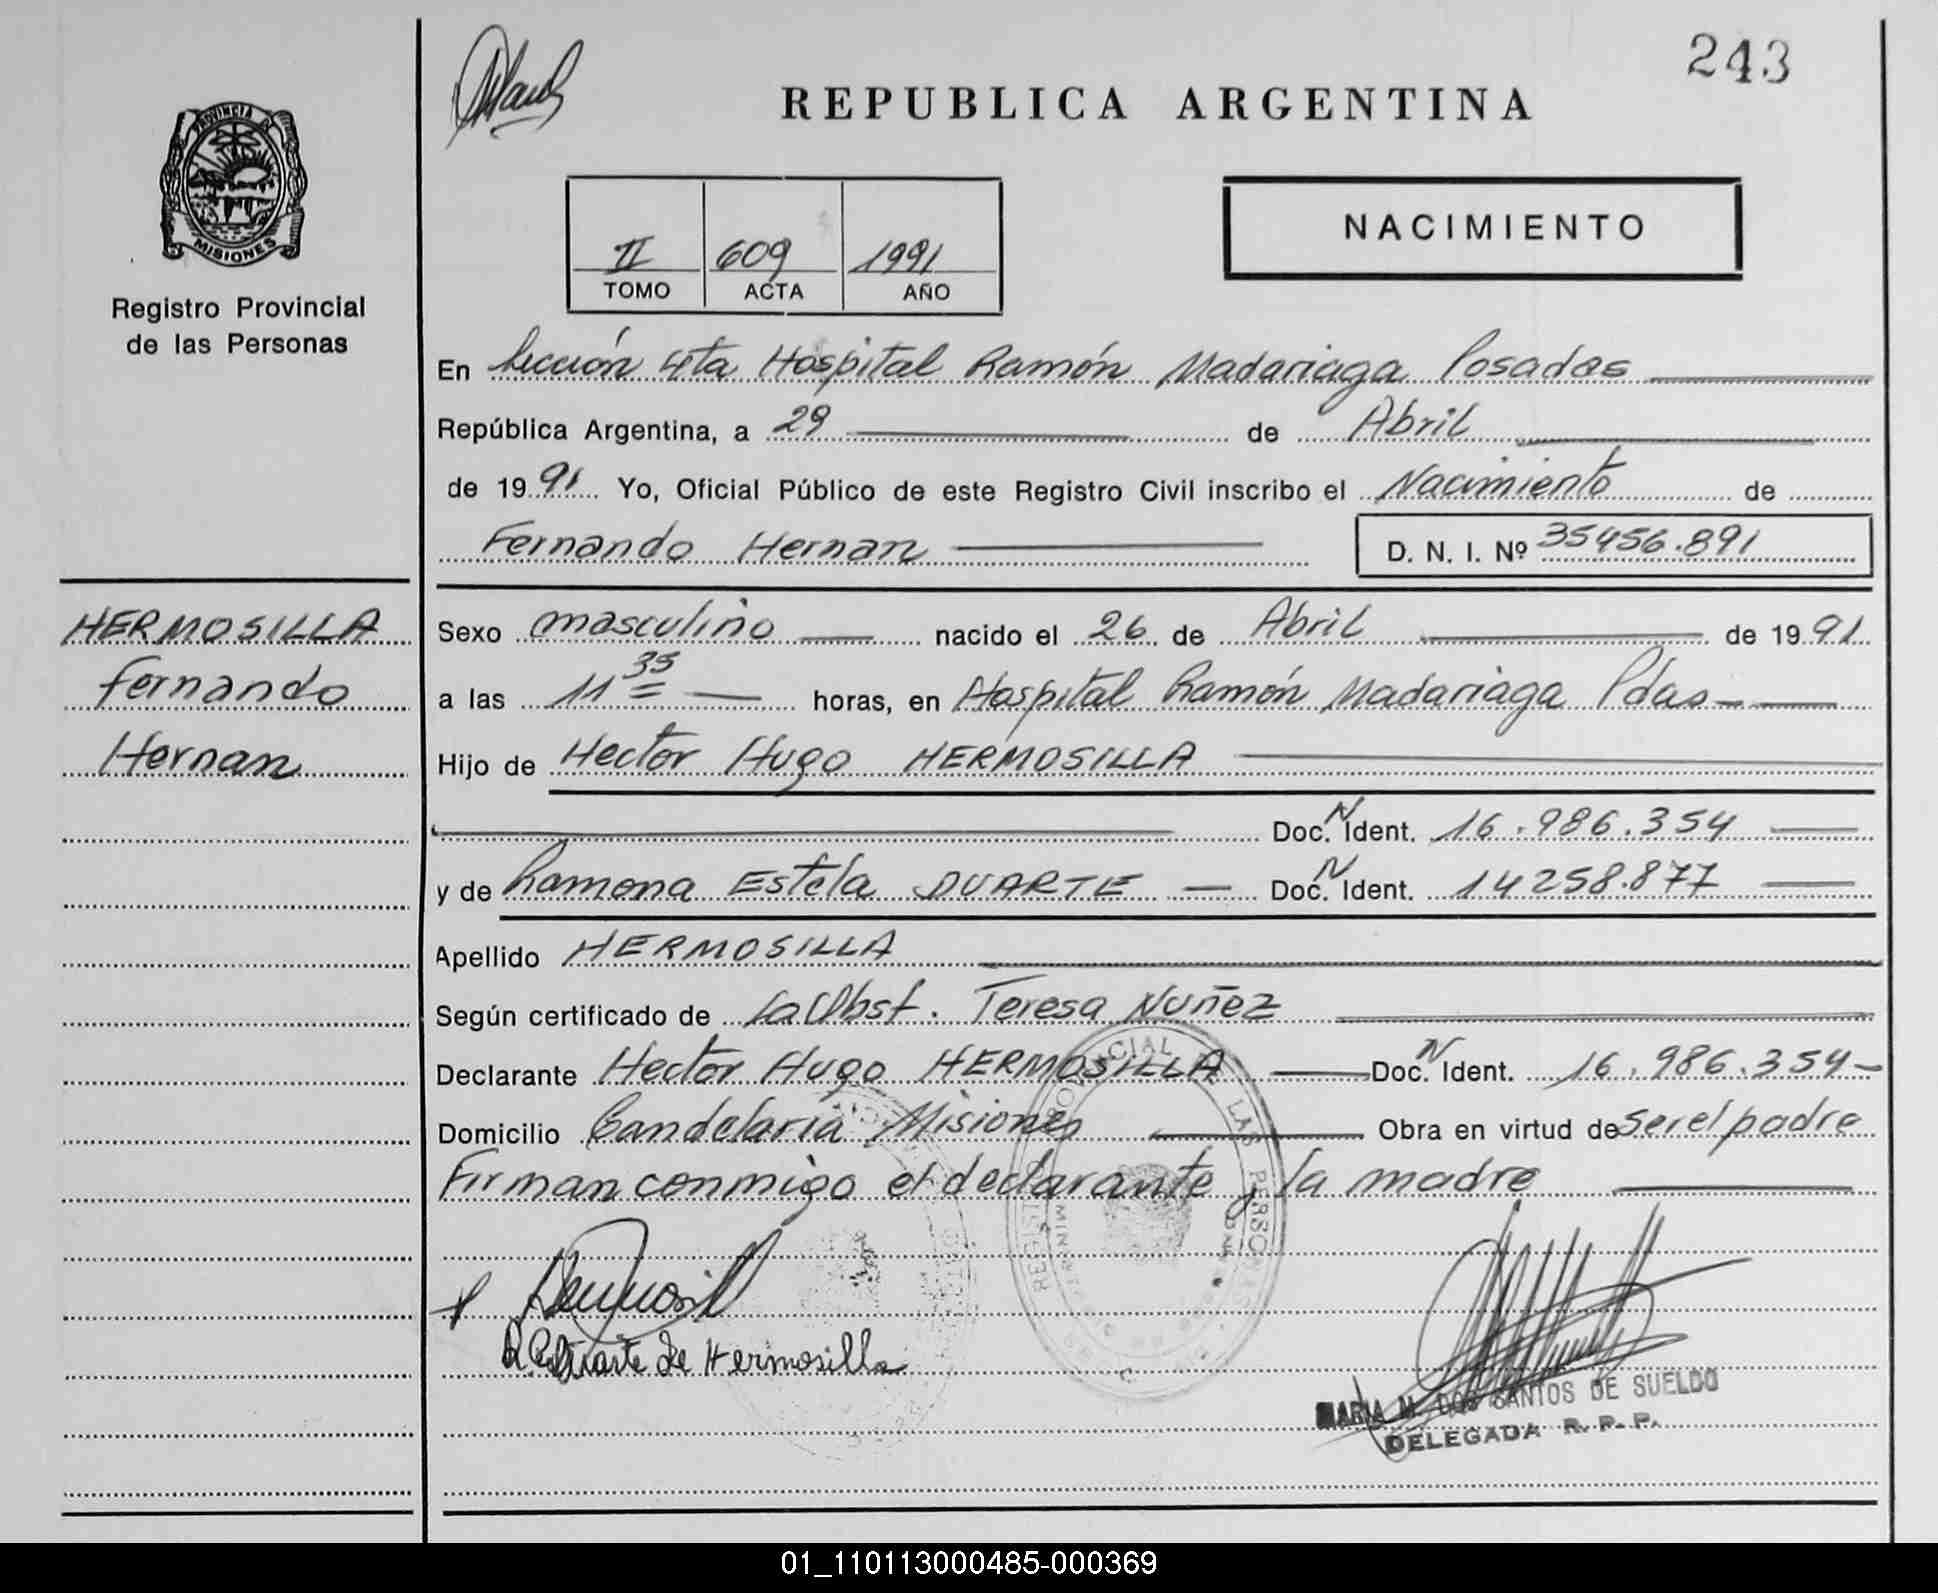 243
REPUBLICA ARGENTINA
PROVINCIA DE
MISIONES
Registro Provincial
de las Personas
NACIMIENTO
II 609 1991
TOMO ACTA AÑO
En Sección 4ta Hospital Ramón Madariaga Posadas
República Argentina, a 29 de Abril
de 1991 Yo, Oficial Público de este Registro Civil inscribo el Nacimiento de
Fernando Hernan D. N. I. Nº 35456.891
HERMOSILLA
Fernando
Hernan
Sexo masculino nacido el 26 de Abril de 1991
a las 11 35 horas, en Hospital Ramón Madariaga Pdas
Hijo de Hector Hugo HERMOSILLA
Doc. N Ident. 16.986.354
y de Ramona Estela DUARTE Doc. N Ident. 14258.877
Apellido HERMOSILLA
Según certificado de La Obst. Teresa Nuñez
Declarante Hector Hugo HERMOSILLA Doc. N Ident. 16.986.354
Domicilio Candelaria Misiones Obra en virtud de ser el padre
Firman conmigo el declarante y la madre
R. E. Duarte de Hermosilla
MARIA M. DOS SANTOS DE SUELDO
DELEGADA R. P. P.
01_110113000485-000369